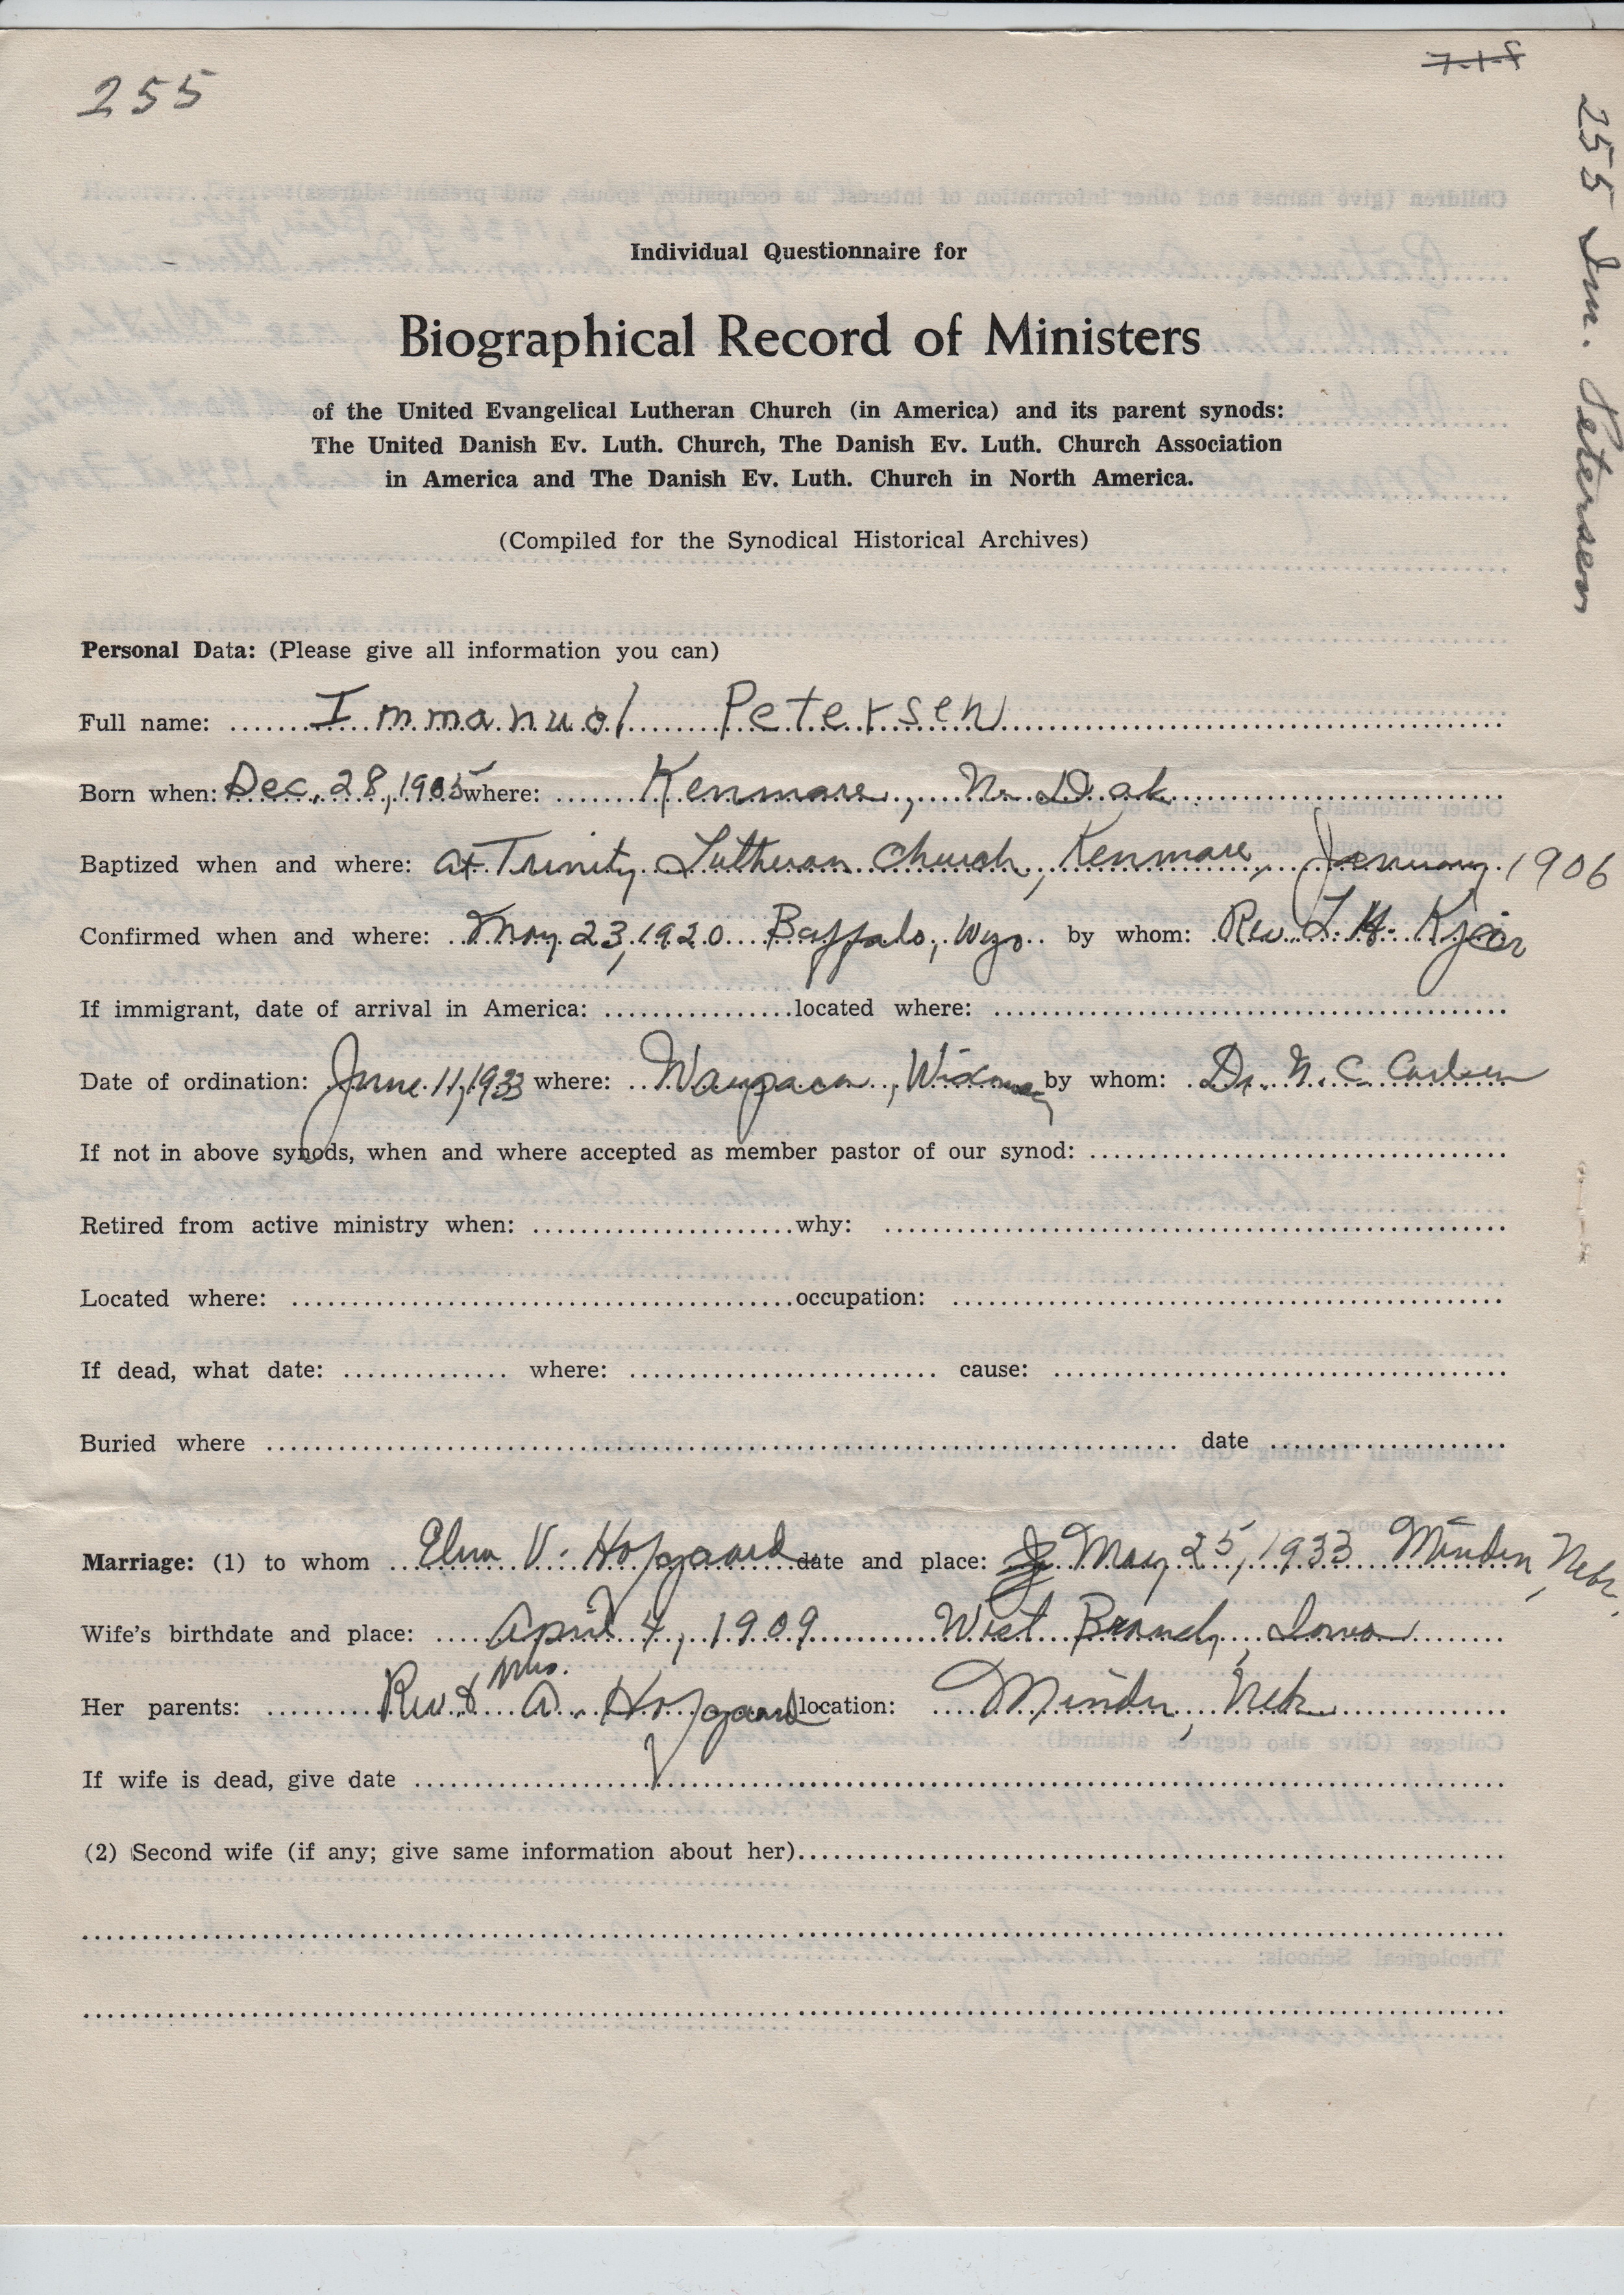 255
255 Im. Petersen
Individual Questionnaire for
Biographical Record of Ministers
of the United Evangelical Lutheran Church (in America) and its parent synods:
The United Danish Ev. Luth. Church, The Danish Ev. Luth. Church Association
in America and The Danish Ev. Luth. Church in North America.
(Compiled for the Synodical Historical Archives)
Personal Data: (Please give all information you can)
Full name: Immanuel Petersen
Born when: Dec. 28, 1905 where: Kenmare, N. Dak
Baptized when and where: at Trinity Lutheran Church, Kenmare, January 1906
Confirmed when and where: May 23, 1920 Buffalo, Wyo. by whom: Rev. L. H. Kjær
If immigrant, date of arrival in America: located where:
Date of ordination: June 11, 1933 where: Waupaca, by whom: Dr. N. C. Carlsen
If not in above synods, when and where accepted as member pastor of our synod:
Retired from active ministry when: why:
Located where: occupation:
If dead, what date: where: cause:
Buried where date
Marriage: (1) to whom V. Hofgaard date and place: May 25, 1933 Minden, Nebr.
Wife's birthdate and place: April 4, 1909 West Branch, Iowa
Her parents: Rev. & Mrs. A. Hofgaard location: Minden, Nebr.
If wife is dead, give date
(2) Second wife (if any; give same information about her)